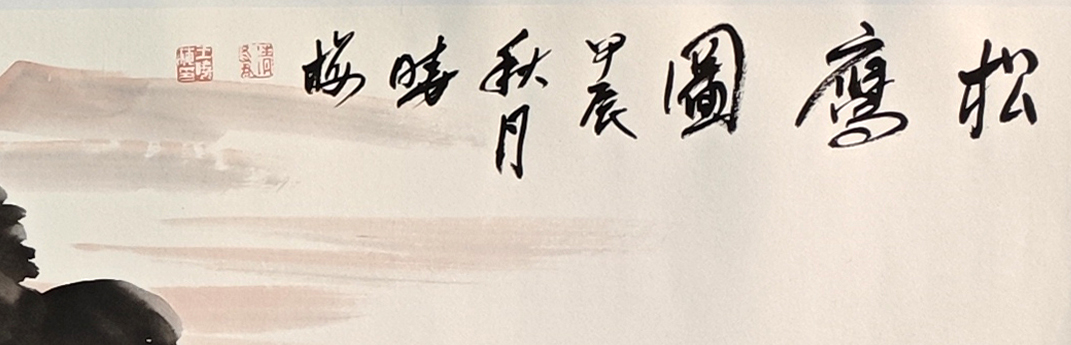 松鹰圖
甲辰
秋月
晴梅